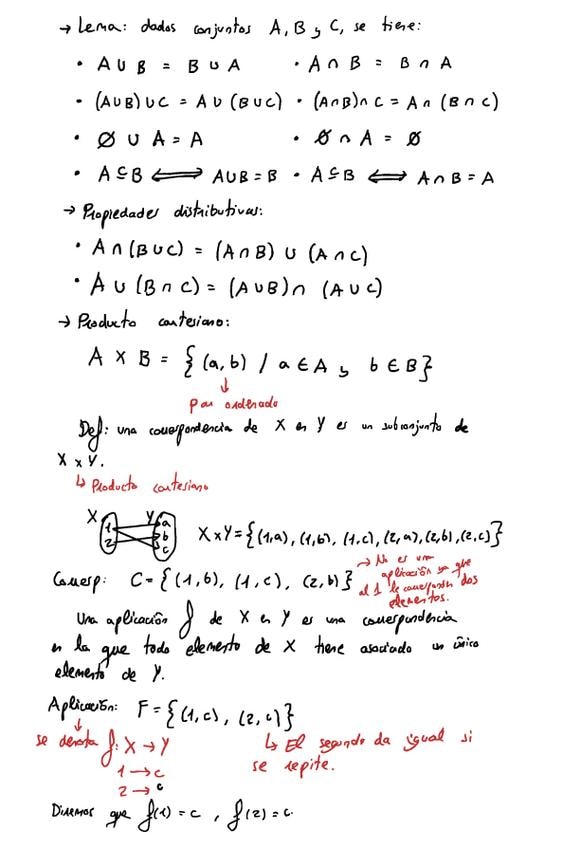 → Lema: dados conjuntos A, B y C, se tiene:
• A ∪ B = B ∪ A • A ∩ B = B ∩ A
• (A∪B)∪C = A∪(B∪C) • (A∩B)∩C = A∩(B∩C)
• ∅ ∪ A = A • ∅ ∩ A = ∅
• A⊆B ⟺ A∪B = B • A⊆B ⟺ A∩B = A
→ Propiedades distributivas:
• A∩(B∪C) = (A∩B) ∪ (A∩C)
• A∪(B∩C) = (A∪B)∩ (A∪C)
→ Producto cartesiano:
A × B = {(a,b) / a∈A y b∈B}
↓
par ordenado
Def: una correspondencia de X en Y es un subconjunto de
X×Y.
↳ Producto cartesiano
X Y
1 2 a b c
X×Y={(1,a), (1,b), (1,c), (2,a), (2,b), (2,c)}
Corresp: C={(1,b), (1,c), (2,b)}
→ No es una
aplicación ya que
al 1 le corresponden dos
elementos.
Una aplicación f de X en Y es una correspondencia
en la que todo elemento de X tiene asociado un único
elemento de Y.
Aplicación: F={(1,c), (2,c)}
↓
se denota f: X → Y
1 → c
2 → c
↳ El segundo da igual si
se repite.
Diremos que f(1)=c, f(2)=c.